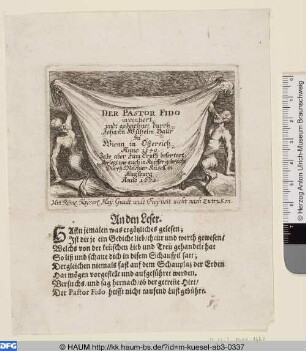 DER PASTOR FIDO
inventiert
undt gezeichnet durch
Johann Wilhelm Baur
In
Wienn in Östereich
Anno 1640.
Jetzt aber zum Truckh befördert
Melchior Küsell in
Augspurg
Anno 1671
Mit Röm: Kayserl: May: Gnadt und Freyheit nicht nach Zutrucken.
An den Leser.
Hastu jemalen was ergötzliches gelesen;
Ist dir je ein Gedicht lieblich nur und werth gewesen/
Welchs von der keuschen Lieb und Trew gehandlet hat
So liß und schawe dich in disem Schauspil satt;
Dergleichen niemals fast auf dem Schauplatz der Erden
Hat mögen vorgestellt und aufgeführet werden,
Versuchs, und sag hernach/ob der getreüe Hirt/
Der Pastor Fido heißt nicht tausend Lust gebühre.
© HAUM http://kk.haum-bs.de/?id=m-kuesel-ab3-0337
Herzog Anton Ulrich-Museum
DFG